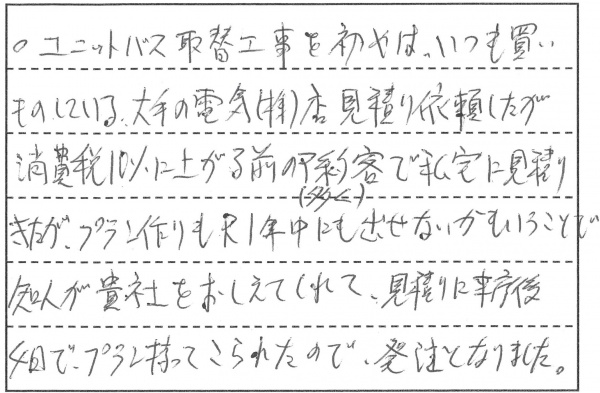 ○ユニットバス取替工事を初めは、いつも買い
ものしている、大手の電気(株)店見積り依頼したが
消費税10%に上がる前の予約客で私宅に見積り
(多く)
きたが、プラン作りも R1年中にも出せないかもいうことで
知人が貴社をおしえてくれて、見積りに来宅後
4日で、プラン持ってこられたので、発注となりました。